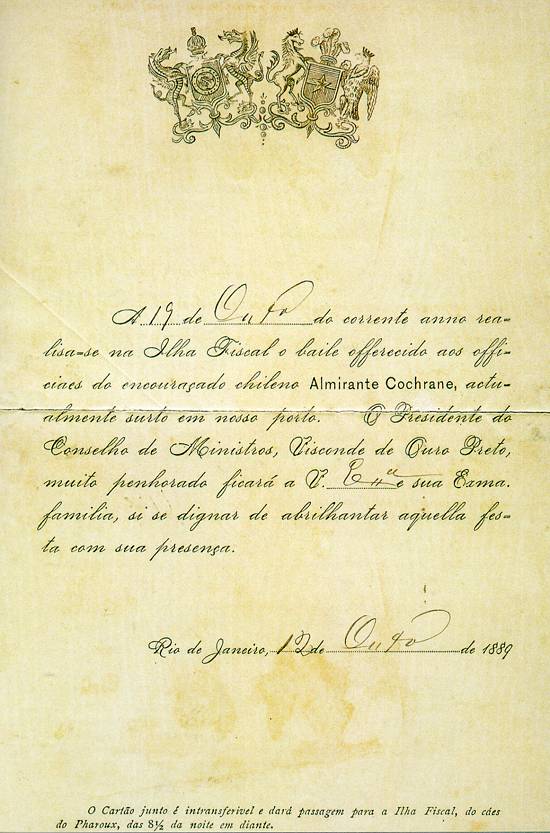 A 19 de Outo do corrente anno rea=
lisa=se na Ilha Fiscal o baile offerecido aos offi=
ciaes do encouraçado chileno Almirante Cochrane, actu=
almente surto em nosso porto. O Presidente do
Conselho de Ministros, Visconde de Ouro Preto,
muito penhorado ficará a V. Exa e sua Exma.
familia, si se dignar de abrilhantar aquella fes=
ta com sua presença.
Rio de Janeiro, 12 de Outo de 1889
O Cartão junto é intransferivel e dará passagem para a Ilha Fiscal, do cáes
do Pharoux, das 8½ da noite em diante.